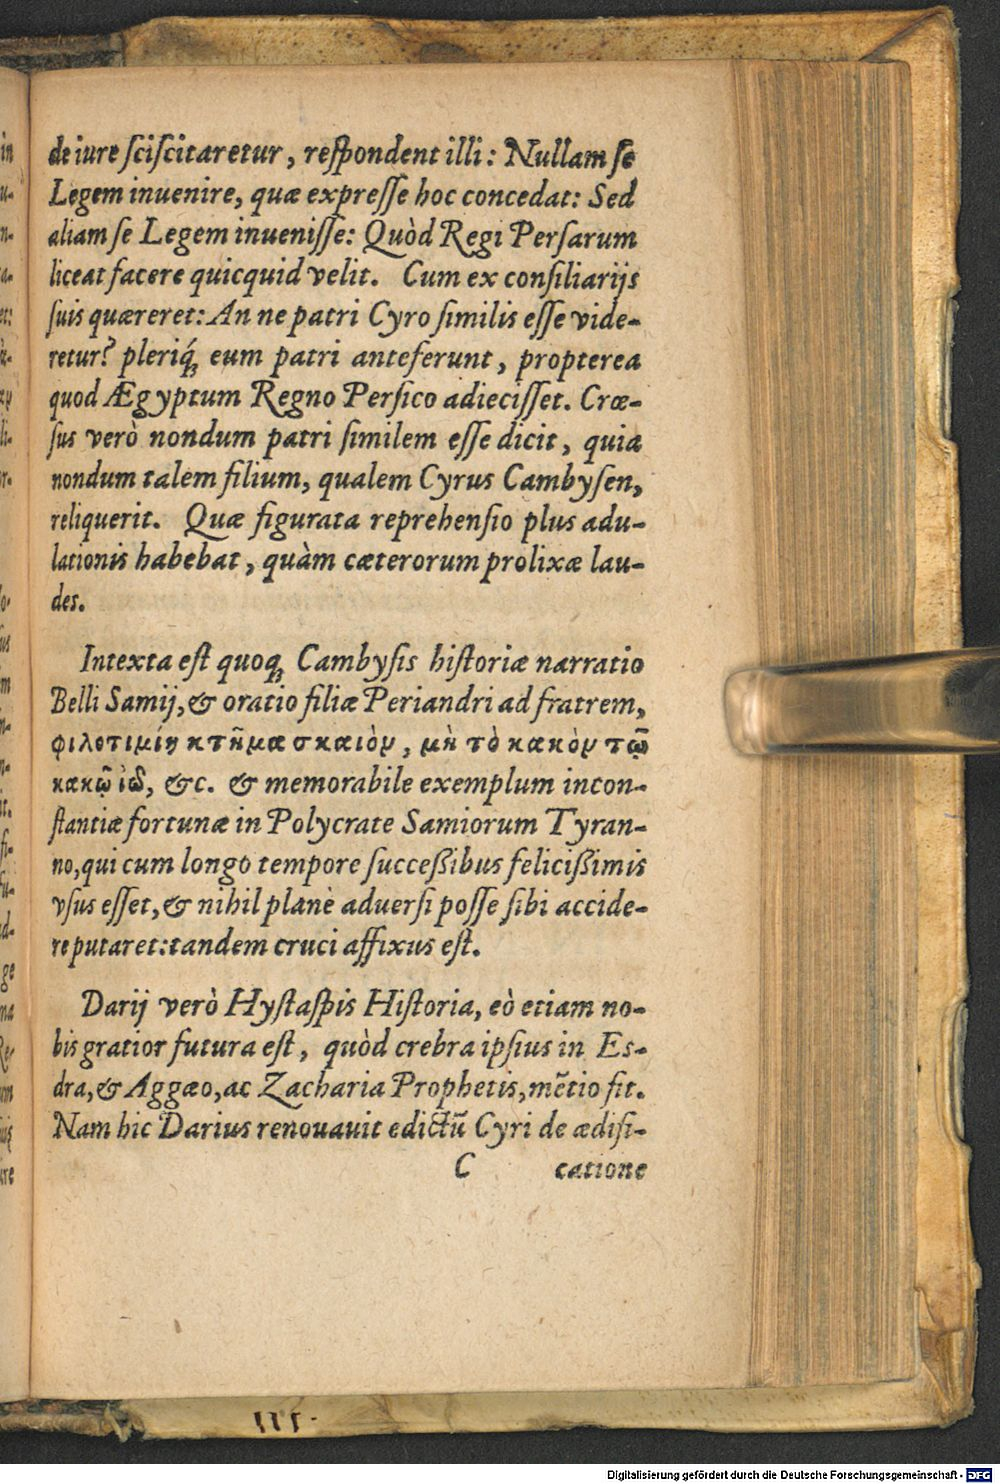 de iure ſciſcitaretur, reſpondent illi: Nullam ſe
Legem inuenire, quæ expreſſe hoc concedat: Sed
aliam ſe Legem inueniſſe: Quòd Regi Perſarum
liceat facere quicquid velit. Cum ex conſiliarijs
ſuis quæreret: An ne patri Cyro ſimilis eſſe vide-
retur? pleriq́ꝫ eum patri anteferunt, propterea
quod Ægyptum Regno Perſico adieciſſet. Crœ-
ſus verò nondum patri ſimilem eſſe dicit, quia
nondum talem filium, qualem Cyrus Cambyſen,
reliquerit. Quæ figurata reprehenſio plus adu-
lationis habebat, quàm cæterorum prolixæ lau-
des.
Intexta eſt quoqꝫ Cambyſis hiſtoriæ narratio
Belli Samij, & oratio filiæ Periandri ad fratrem,
φιλοτιμίη κτῆμα σκαιὸν, μὴ τὸ κακὸν τῷ
κακῷ ἰῶ, &c. & memorabile exemplum incon-
ſtantiæ fortunæ in Polycrate Samiorum Tyran-
no, qui cum longo tempore ſucceßibus felicißimis
vſus eſſet, & nihil planè aduerſi poſſe ſibi accide-
re putaret: tandem cruci affixus eſt.
Darij verò Hyſtaſpis Hiſtoria, eò etiam no-
bis gratior futura eſt, quòd crebra ipſius in Eſ-
dra, & Aggæo, ac Zacharia Prophetis, mẽtio fit.
Nam hic Darius renouauit edictũ Cyri de ædifi-
C catione
Digitalisierung gefördert durch die Deutsche Forschungsgemeinschaft - DFG